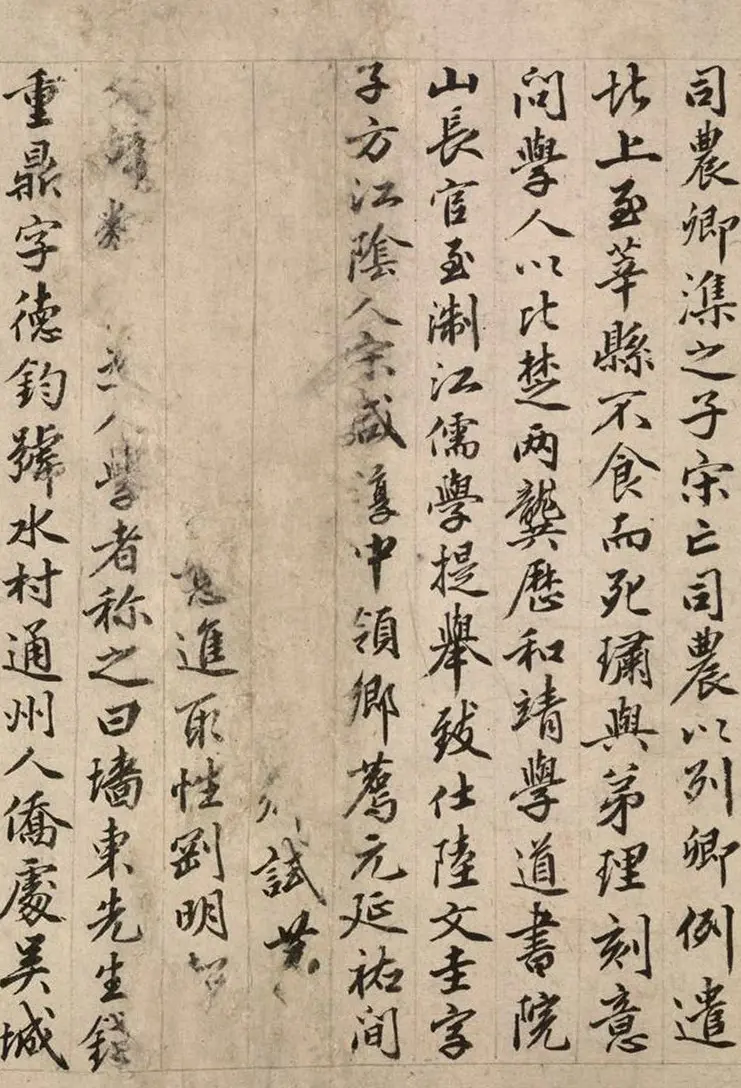 司農卿潗之子宋亡司農以列卿例遣
北上至莘縣不食而死璛與弟理刻意
問學人以比楚两龔歷和靖學道書院
山長官至淛江儒學提舉致仕陸文圭字
子方江陰人宋咸淳中領鄉薦元延祐間
試
進取性剛明
人學者称之曰墻東先生錢
重鼎字德鈞號水村通州人僑處吴城